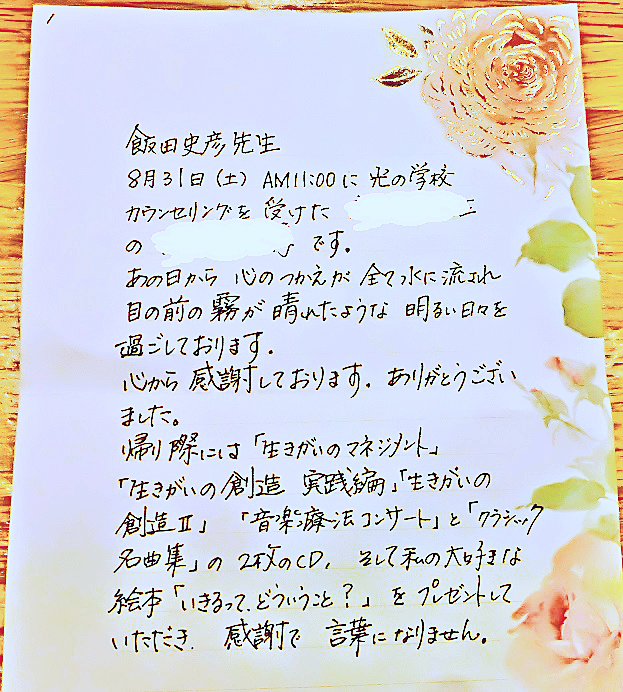 飯田史彦先生
8月31日(土) AM11:00に 光の学校
カウンセリングを 受けた
の です。
あの日から 心のつかえが 全て水に流され
目の前の霧が 晴れたような 明るい日々を
過ごしております。
心から 感謝しております。ありがとうござい
ました。
帰り際には「生きがいのマネジメント」
「生きがいの創造 実践編」「生きがいの
創造Ⅱ」 「音楽療法コンサート」と「クラシック
名曲集」の 2枚のCD, そして私の大好きな
絵本「いきるって、どういうこと?」を プレゼントして
いただき 感謝で 言葉になりません。